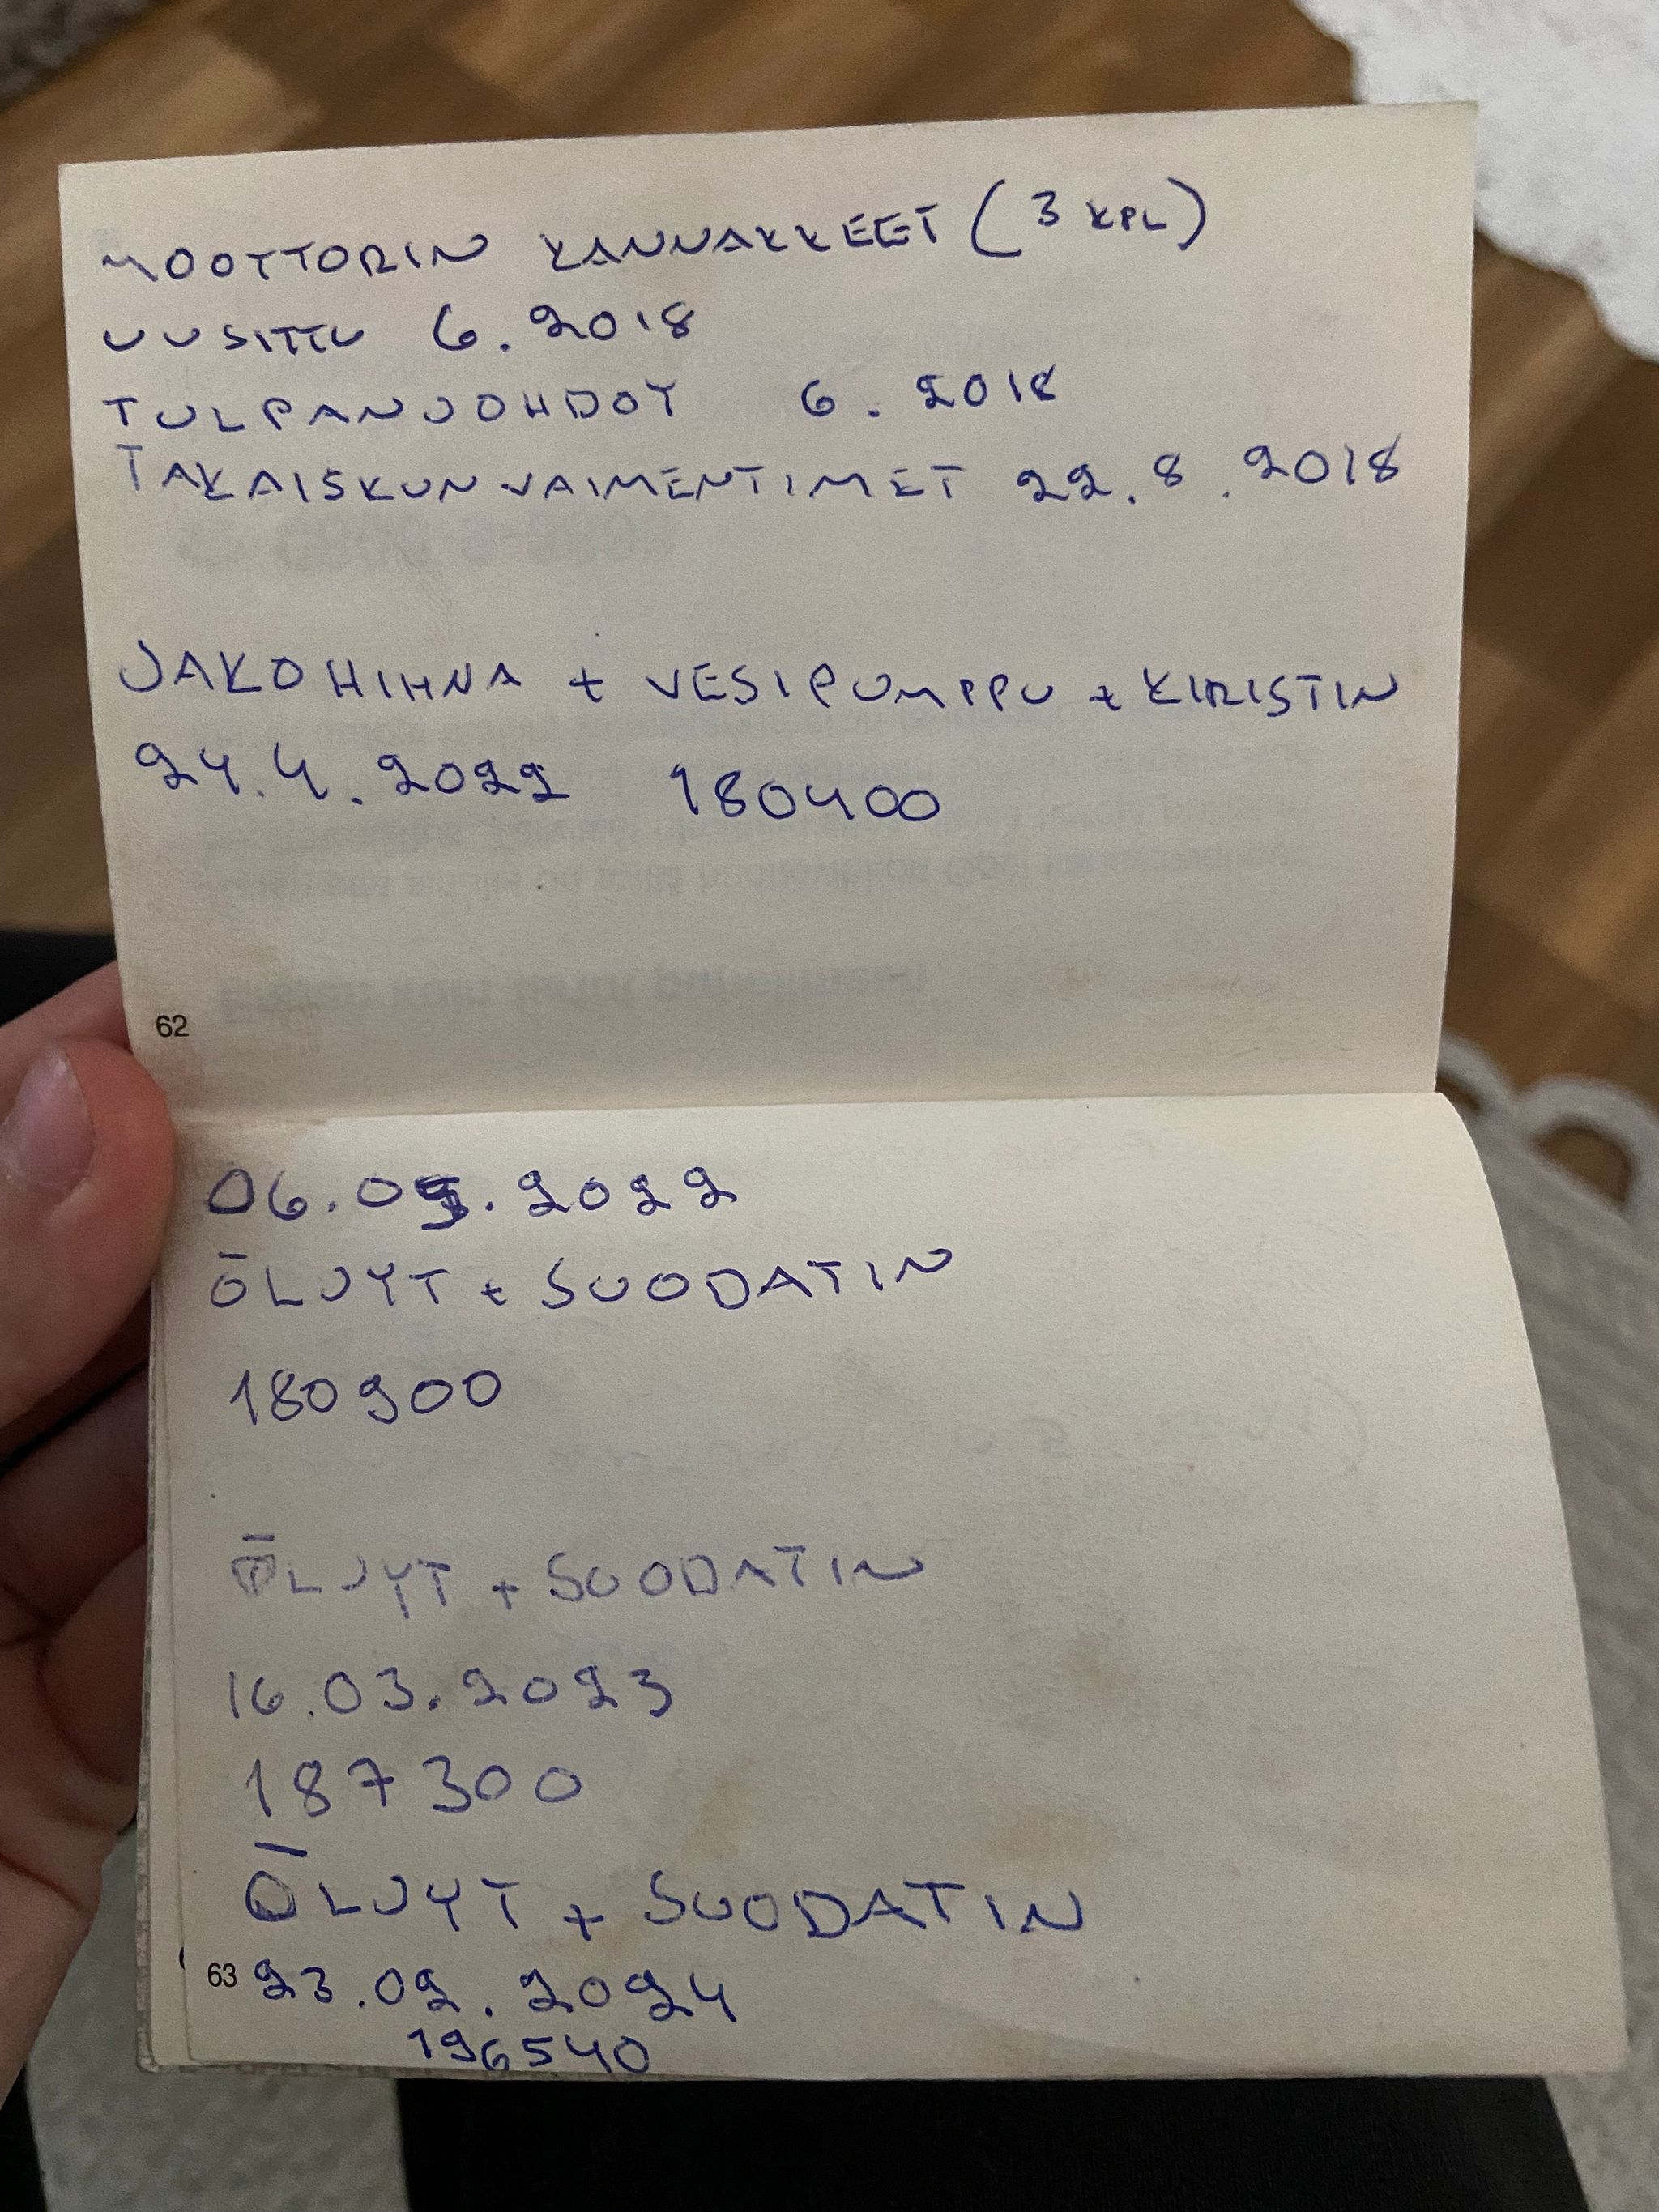 MOOTTORIN KANNAKKEET (3 KPL)
UUSITTU 6.2018
TULPANJOHDOT 6.2018
TAKAISKUNVAIMENTIMET 22.8.2018
JAKOHIHNA + VESIPUMPPU + KIRISTIN
24.4.2022 180400
62
06.05.2022
ÖLJYT + SUODATIN
180900
ÖLJYT + SUODATIN
16.03.2023
187300
ÖLJYT + SUODATIN
63 23.02.2024
196540